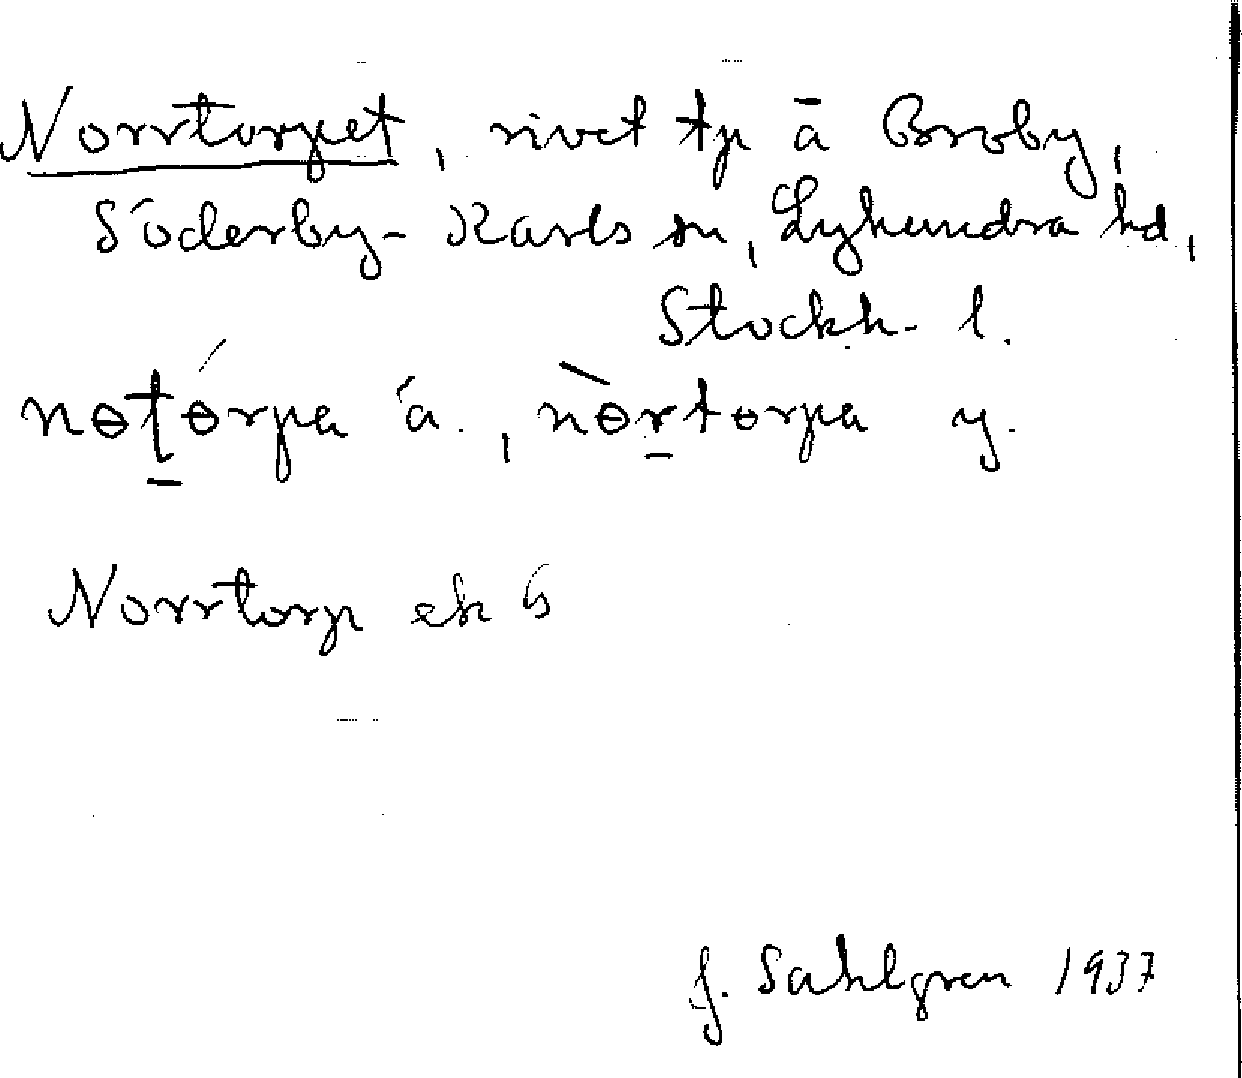 Norrtorpet, rivet tp å Broby,
Söderby-Karls sn, Lyhundra hd,
Stockh. l.
nɵt̠ɵ́rpa ä., nɵ̀r̠tɵrpa y.
Norrtorp ek 6
J. Sahlgren 1937